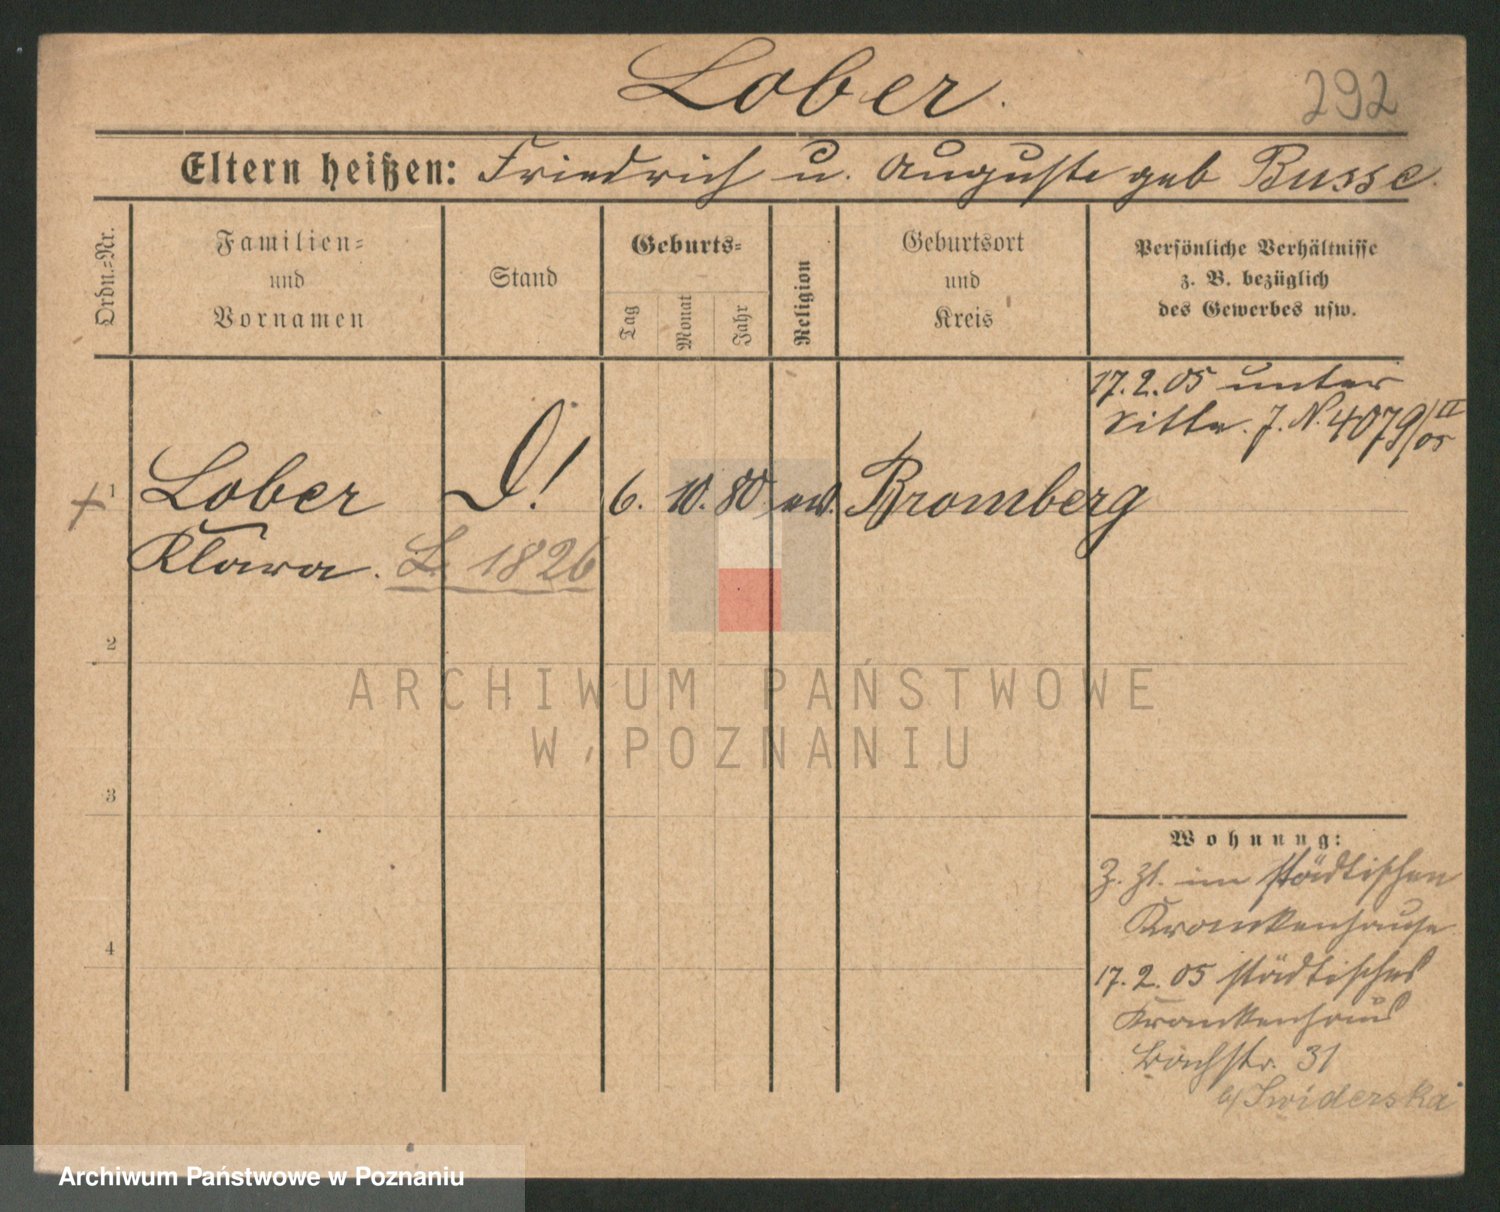 Lober.
292
Eltern heißen: Friedrich u. Auguste geb Busse.
Ordn.=Nr.
Familien=
und
Vornamen
Stand
Geburts=
Tag
Monat
Jahr
Religion
Geburtsort
und
Kreis
Persönliche Verhältnisse
z. B. bezüglich
des Gewerbes usw.
17.2.05 unter
Sitte. J. N. 4079/II 05
1
Lober D! 6. 10. 80 ev. Bromberg
Klara. L. 1826
2
ARCHIWUM PAŃSTWOWE
W POZNANIU
3
Wohnung:
Z. Zt. im städtischen
Krankenhause
4
17.2.05 städtisches
Krankenhaus
Bachstr. 31
b/ Swiderska
Archiwum Państwowe w Poznaniu